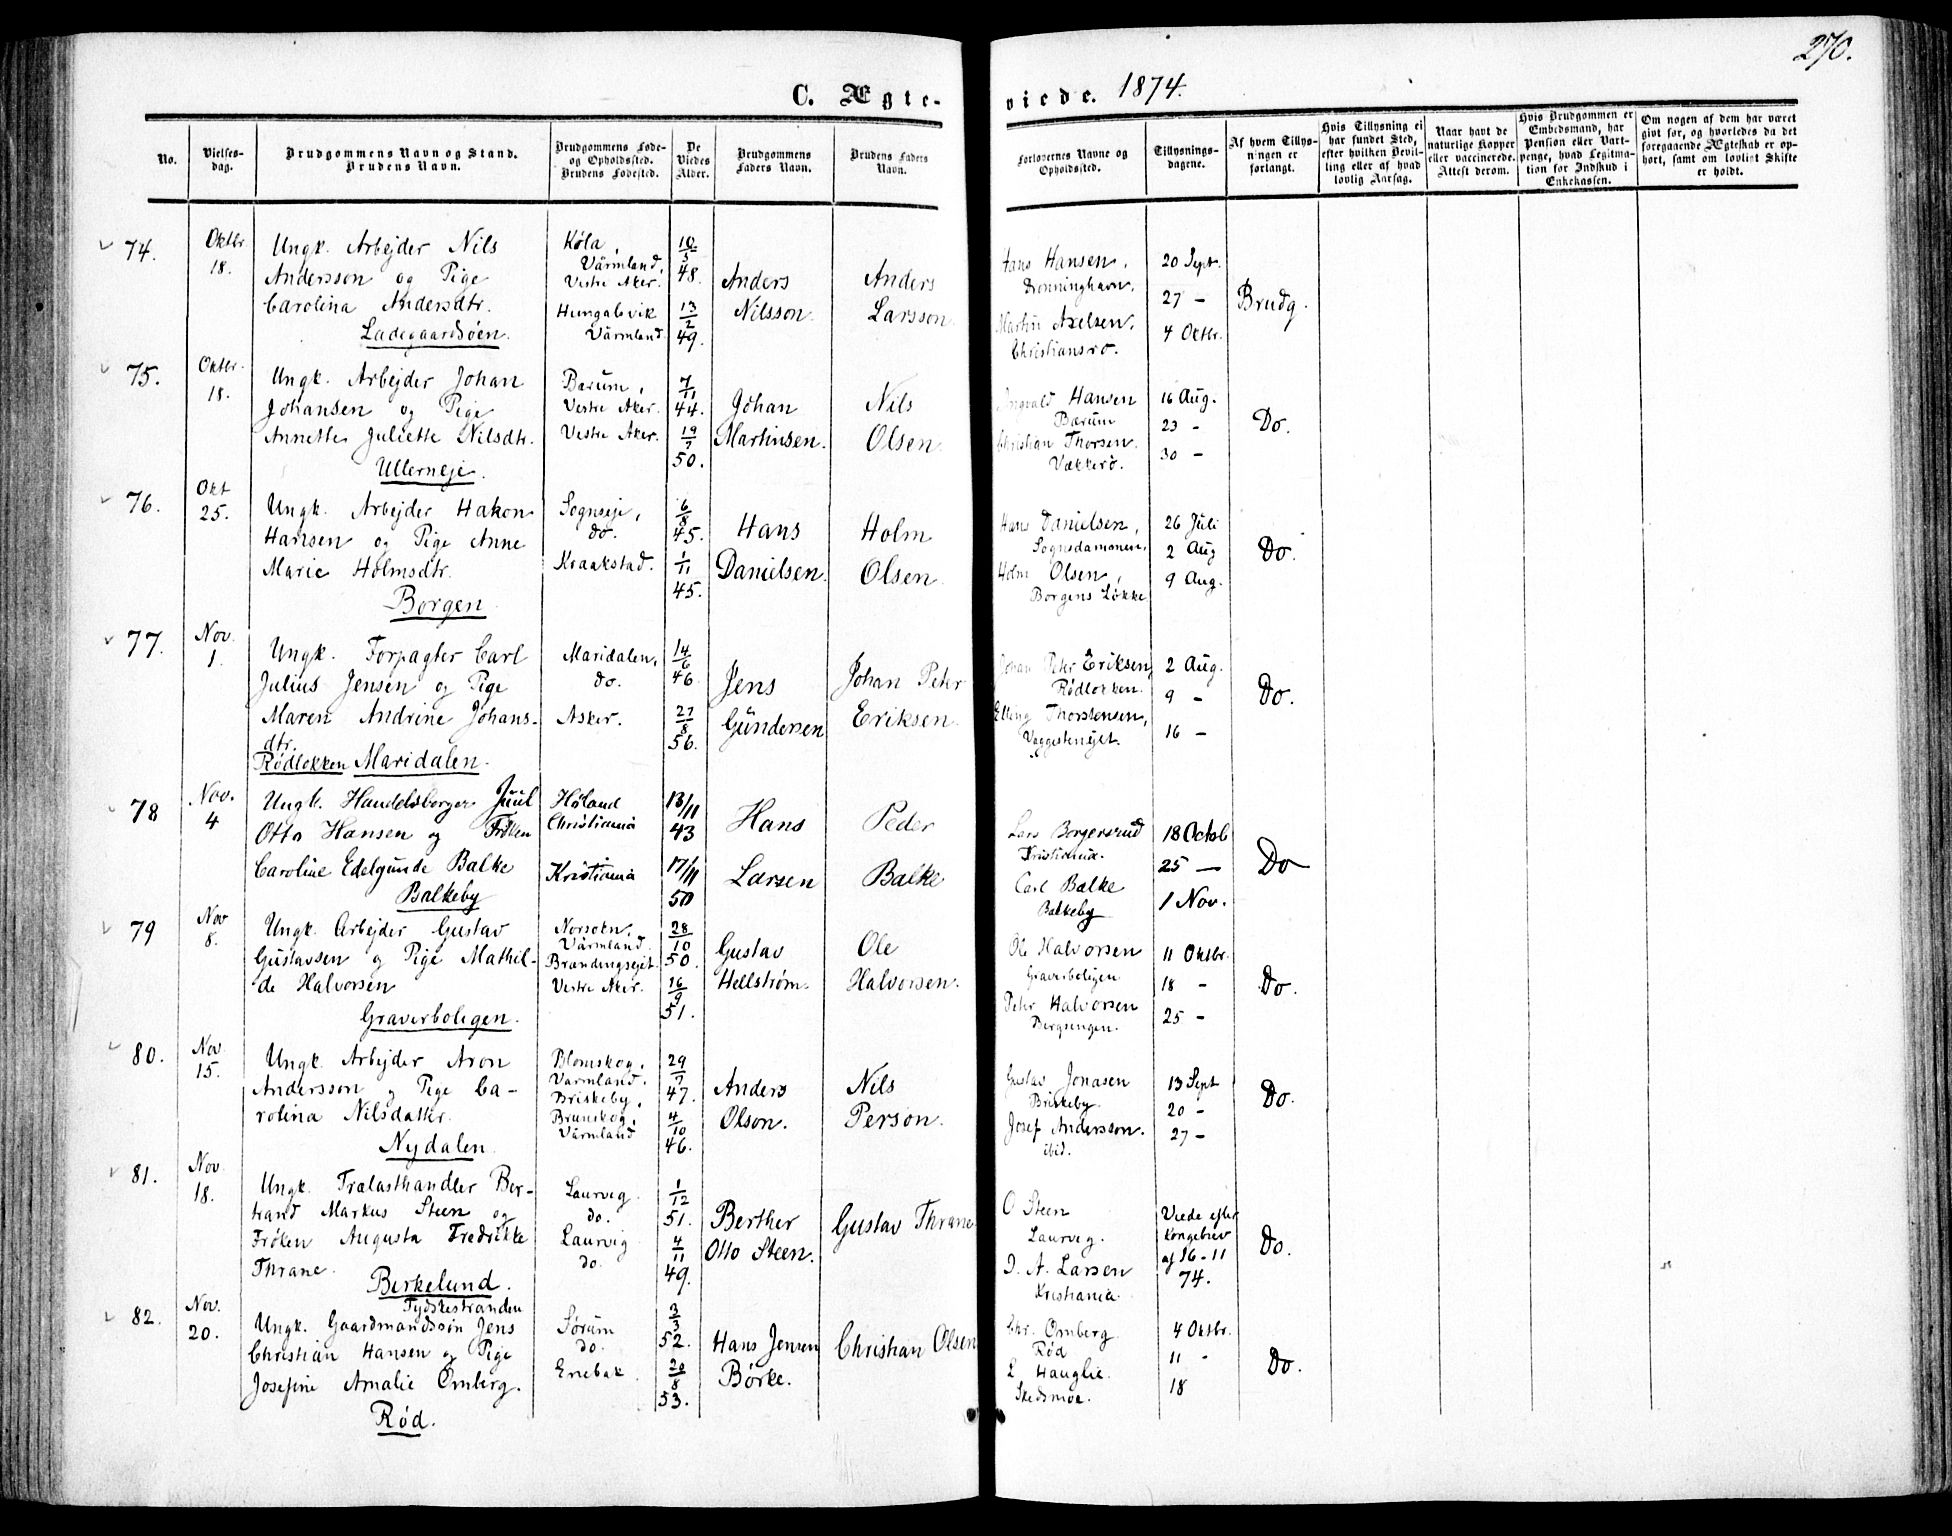 270.
C. Ægteviede. 1874.
No.
Vielses-dag.
Brudgommens Navn og Stand. Brudens Navn.
Brudgommens Føde- og Opholdssted. Brudens Fødested.
De Viedes Alder.
Brudgommens Faders Navn.
Brudens Faders Navn.
Forlovernes Navne og Opholdssted.
Tillysnings-dagene.
Af hvem Tillysningen er forlangt.
Hvis Tillysning ei har fundet Sted, efter hvilken Bevilling eller af hvad lovlig Aarsag.
Naar havt de naturlige Kopper eller vaccinerede. Attest derom.
Hvis Brudgommen er Embedsmand, har Pension eller Vartpenge, hvad Legitmation for Indskud i Enkekassen.
Om nogen af dem har været givt før, og hvorledes da det foregaaende Ægteskab er ophørt, samt om lovligt Skifte er holdt.
74. Oktbr 18.
Ungk. Arbejder Nils
Andersson og Pige
Carolina Andersdtr.
Ladegaardsøen.
Køla,
Värmland,
Vestre Aker.
Hungalsvik
Värmland
10/5 48.
13/2 49.
Anders
Nilsson.
Anders
Larsson.
Hans Hansen,
Dronninghavn.
Martin Axelsen,
Christiansro.
20 Sept.
27 -
4 Oktbr.
Brudg.
75. Oktbr. 18.
Ungk. Arbejder Johan
Johansen og Pige
Annette Juliette Nilsdtr.
Ullerneje.
Barum,
Vestre Aker.
Vestre Aker.
7/11 44.
19/7 50.
Johan
Martinsen.
Nils
Olsen
Ingvald Hansen
Bærum
Christian Thorsen.
Vækkerø.
16 Aug.
23 -
30 -
Do.
76. Okt 25.
Ungk. Arbejder Hakon
Hansen og Pige Anne
Marie Holmsdtr.
Borgen
Sognseje,
do.
Kraakstad.
6/8 45.
1/11 45.
Hans
Danielsen.
Holm
Olsen
Hans Danielsen,
Sognsdammen.
Holm Olsen,
Borgens Løkke
26 Juli
2 Aug
9 Aug.
Do.
77. Nov. 1.
Ungk. Forpagter Carl
Julius Jensen og Pige
Maren Andrine Johans-
dtr.
Rødløkken Maridalen.
Maridalen,
do.
Asker.
14/6 46
27/8 56.
Jens
Gundersen
Johan Peter
Eriksen
Johan Peter Eriksen
Rødløkken.
Elling Thorstensen,
Vaggestenejet.
2 Aug.
9 -
16 -
Do.
78 Nov. 4
Ungk. Handelsborger Juul
Otto Hansen og Frøken
Caroline Edelgunde Balke
Balkeby
Høland
Christiania
Kristiania
13/11 43
17/11 50
Hans
Larsen
Peder
Balke
Lars Borgersrud
Kristiania.
Carl Balke
Balkeby
18 Octob
25 -
1 Nov.
Do
79 Nov 8.
Ungk. Arbejder Gustav
Gustavsen og Pige Mathil-
de Halvorsen
Graverboligen.
Norsokn.
Värmland.
Brændingsejet.
Vestre Aker.
28/10 50.
16/9 51.
Gustav
Hellstrøm.
Ole
Halvorsen.
Ole Halvorsen
Graverboligen
Peter Halvorsen
Bergsengen.
11 Oktbr.
18 -
25 -
Do.
80. Nov 15.
Ungk. Arbejder Aron
Andersson og Pige Ca-
rolina Nilsdatter.
Nydalen
Blomskog.
Värmland.
Briskeby,
Brunskog,
Värmland
29/7 47.
4/10 46.
Anders
Olson.
Nils
Person.
Gustav Jonasen
Briskeby.
Josef Andersson.
ibid.
13 Sept
20 -
27 -
Do.
81. Nov. 18.
Ungk. Trælasthandler Ber-
trand Markus Steen og
Frøken Augusta Fredrikke
Thrane.
Birkelund.
Laurvig
do.
Laurvig
do.
1/12 51.
4/11 49.
Berther
Otto Steen.
Gustav Thrane
O Steen
Laurvig.
I. A. Larsen
Kristiania.
Viede efter
Kongebrev
af 16-11
74.
Do.
82. Nov. 20.
Tydskestranden
Ungk. Gaardmandssøn Jens
Christian Hansen og Pige
Josefine Amalie Ørnberg.
Rød.
Sørum
do.
Enebak.
3/3 52.
20/8 53.
Hans Jensen
Børke.
Christian Olsen
Chr. Ornberg.
Rød
L Hauglie.
Skedsmoe.
4 Oktbr.
11 -
18
Do.